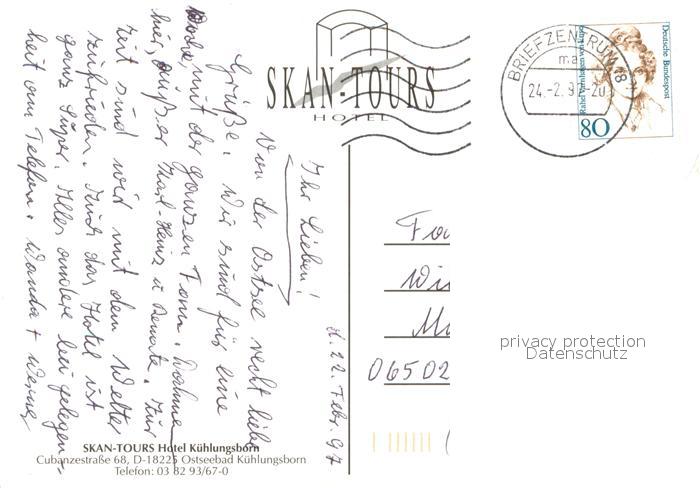 SKAN-TOURS
HOTEL
d. 22. Febr. 97
Ihr Lieben!
Von der Ostsee recht liebe
Grüße. Wir sind für eine
Woche mit der ganzen Fam.
hier, außer Karl-Heinz u Renate. Zur
Zeit sind wir mit dem Wetter
zufrieden. Auch das Hotel ist
ganz Super. Alles andere bei gelegen=
heit am Telefon. Wanda + Werner
SKAN-TOURS Hotel Kühlungsborn
Cubanzestraße 68, D-18225 Ostseebad Kühlungsborn
Telefon: 03 82 93/67-0
BRIEFZENTRUM 18
ma
24.-2.97-20
Deutsche Bundespost
Rahel Varnhagen von Ense
80
Fa
Wi
06502
privacy protection
Datenschutz